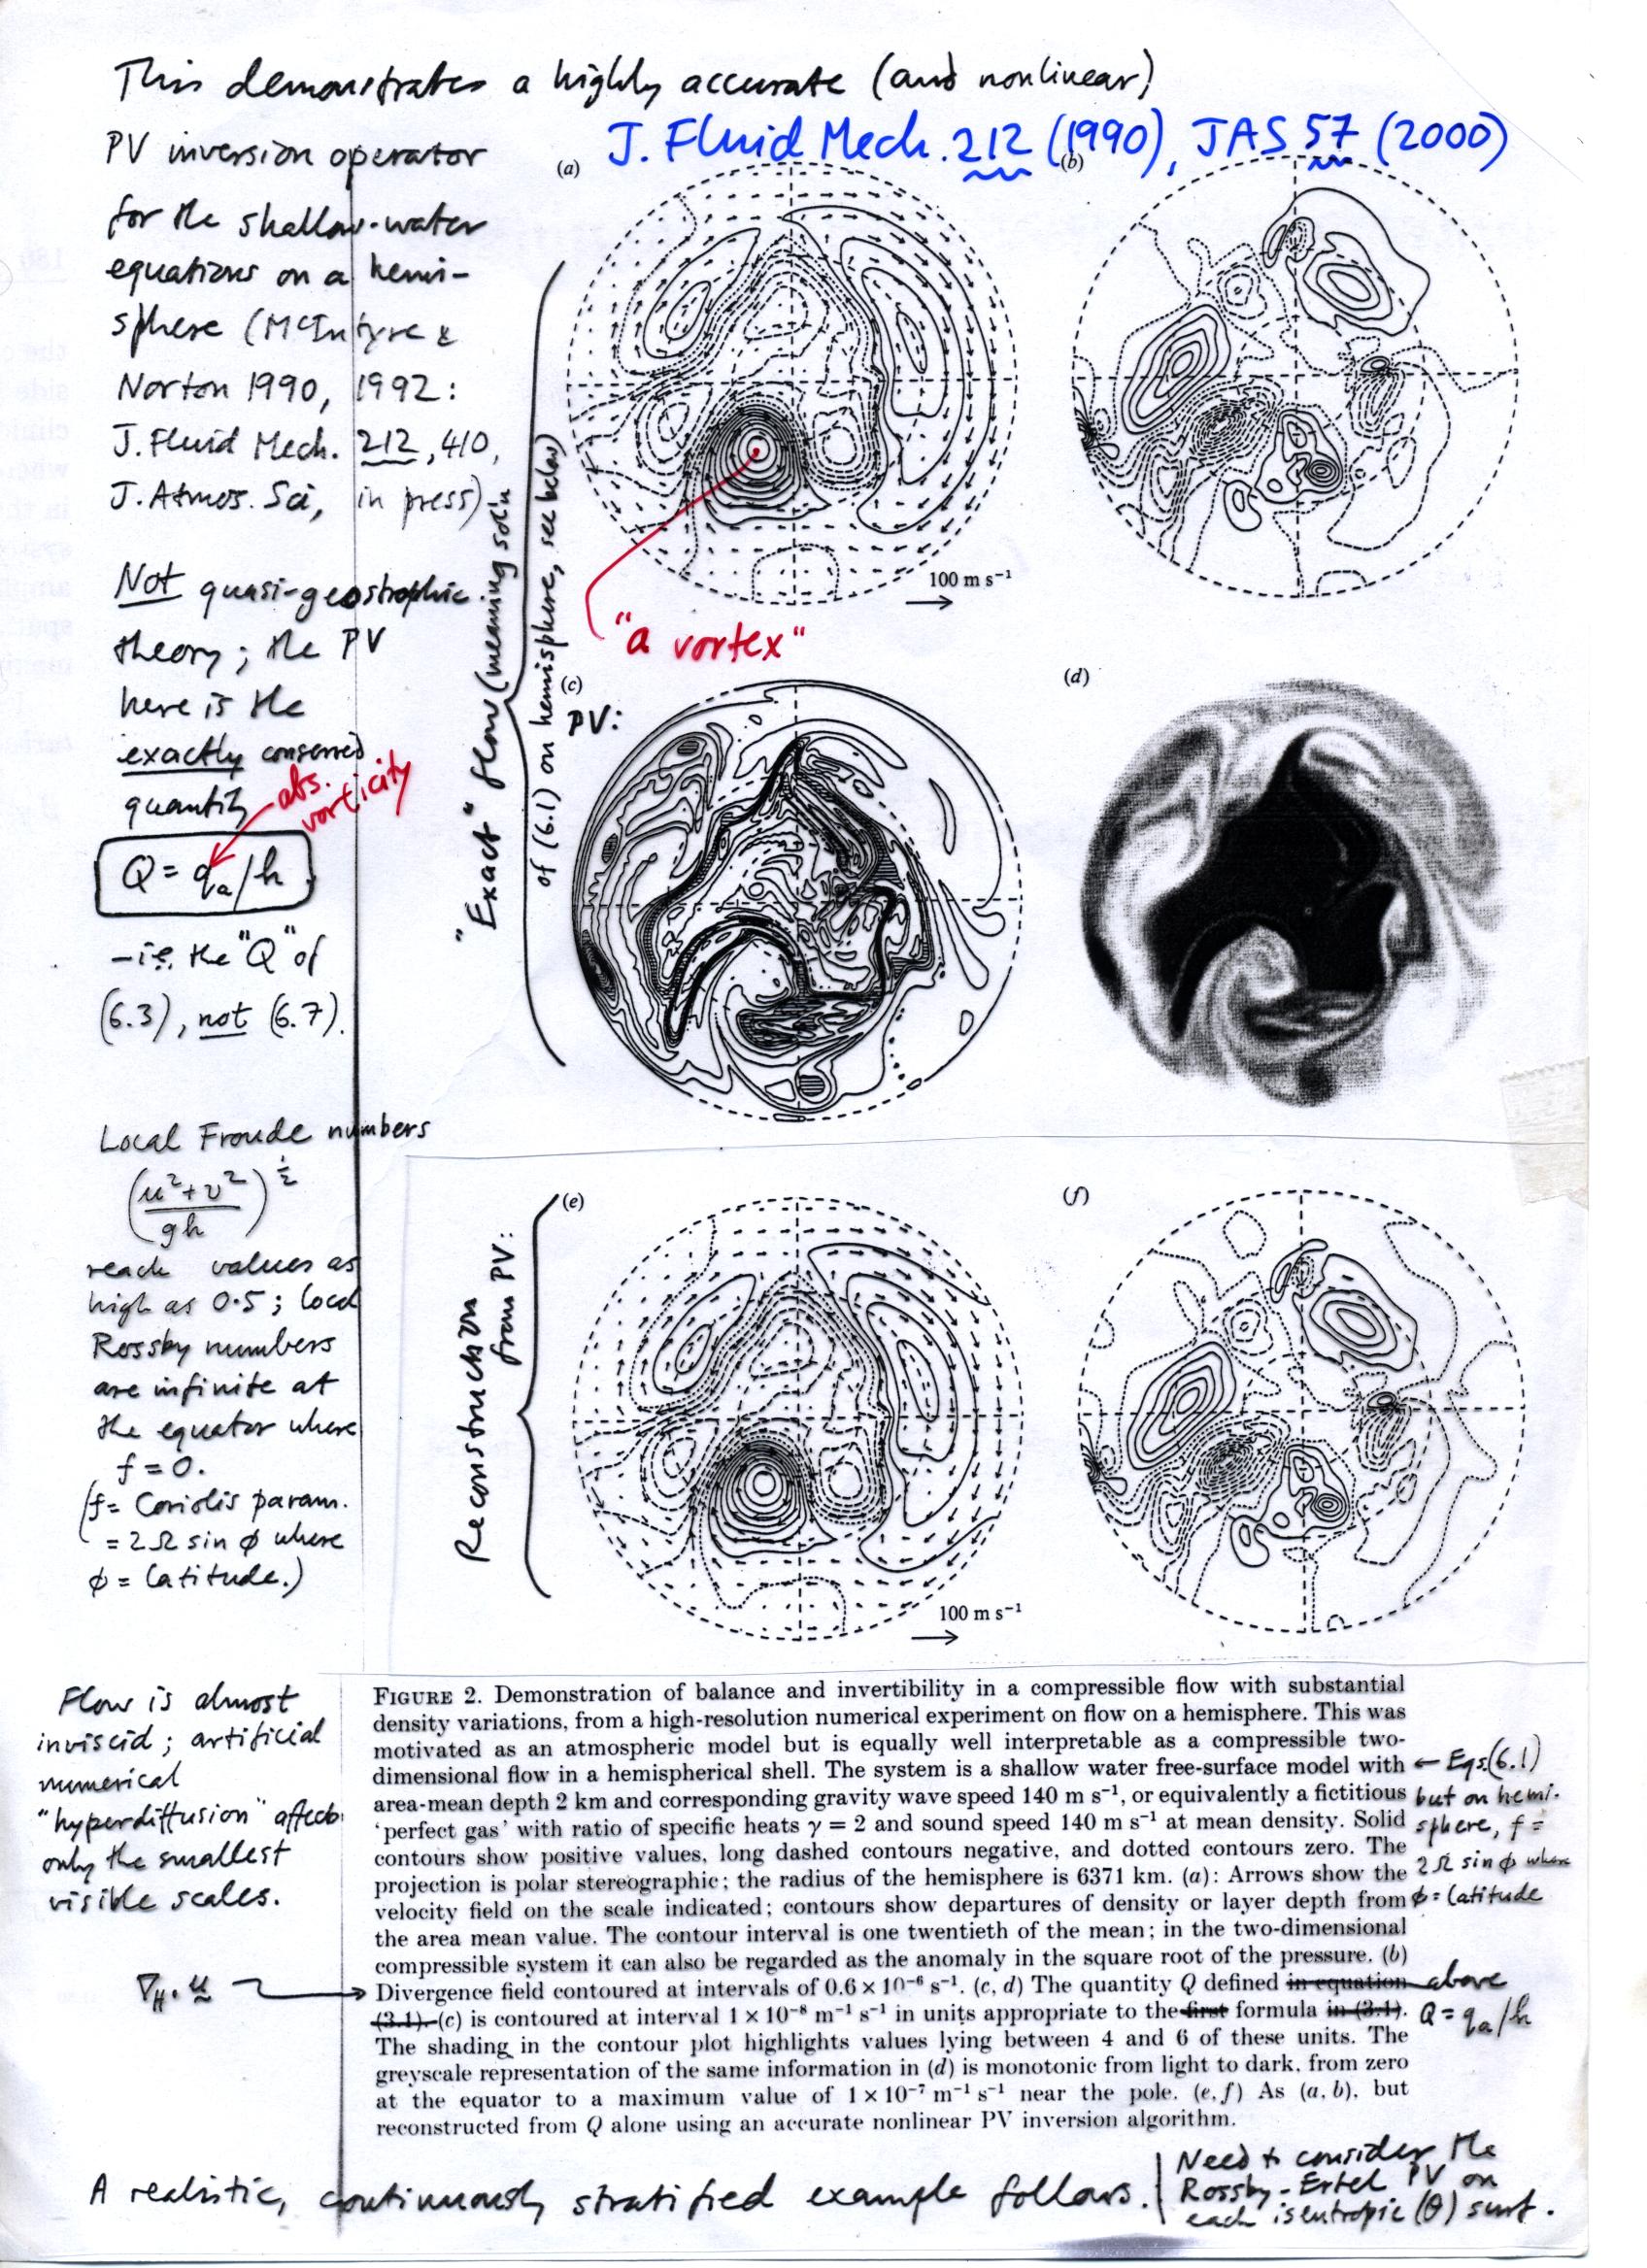 This demonstrates a highly accurate (and nonlinear)
PV inversion operator
for the shallow-water
equations on a hemi-
sphere (McIntyre &
Norton 1990, 1992:
J. Fluid Mech. 212, 410,
J. Atmos. Sci, in press)
J. Fluid Mech. 212 (1990), JAS 57 (2000)
Not quasi-geostrophic
theory; the PV
here is the
exactly conserved
quantity
abs.
vorticity
Q = qa/h
-i.e. the "Q" of
(6.3), not (6.7).
Local Froude numbers
(u²+v²/gh)^½
reach values as
high as 0.5; local
Rossby numbers
are infinite at
the equator where
f = 0.
(f = Coriolis param.
= 2Ω sin ϕ where
ϕ = latitude.)
"Exact" flow (meaning sol'n
of (6.1) on hemisphere, see below)
(a)
(b)
100 m s⁻¹
"a vortex"
(c)
PV:
(d)
Reconstruction
from PV:
(e)
(f)
100 m s⁻¹
Flow is almost
inviscid; artificial
numerical
"hyperdiffusion" affects
only the smallest
visible scales.
∇H · u
FIGURE 2. Demonstration of balance and invertibility in a compressible flow with substantial
density variations, from a high-resolution numerical experiment on flow on a hemisphere. This was
motivated as an atmospheric model but is equally well interpretable as a compressible two-
dimensional flow in a hemispherical shell. The system is a shallow water free-surface model with
area-mean depth 2 km and corresponding gravity wave speed 140 m s⁻¹, or equivalently a fictitious
'perfect gas' with ratio of specific heats γ = 2 and sound speed 140 m s⁻¹ at mean density. Solid
contours show positive values, long dashed contours negative, and dotted contours zero. The
projection is polar stereographic; the radius of the hemisphere is 6371 km. (a): Arrows show the
velocity field on the scale indicated; contours show departures of density or layer depth from
the area mean value. The contour interval is one twentieth of the mean; in the two-dimensional
compressible system it can also be regarded as the anomaly in the square root of the pressure. (b)
Divergence field contoured at intervals of 0.6 × 10⁻⁶ s⁻¹. (c, d) The quantity Q defined in equation
(3.1). (c) is contoured at interval 1 × 10⁻⁸ m⁻¹ s⁻¹ in units appropriate to the first formula in (3.1).
The shading in the contour plot highlights values lying between 4 and 6 of these units. The
greyscale representation of the same information in (d) is monotonic from light to dark, from zero
at the equator to a maximum value of 1 × 10⁻⁷ m⁻¹ s⁻¹ near the pole. (e, f) As (a, b), but
reconstructed from Q alone using an accurate nonlinear PV inversion algorithm.
← Eqs. (6.1)
but on hemi-
sphere, f =
2Ω sin ϕ where
ϕ = latitude
above
Q = qa/h
A realistic, continuously stratified example follows.
Need to consider the
Rossby-Ertel PV on
each isentropic (θ) surf.